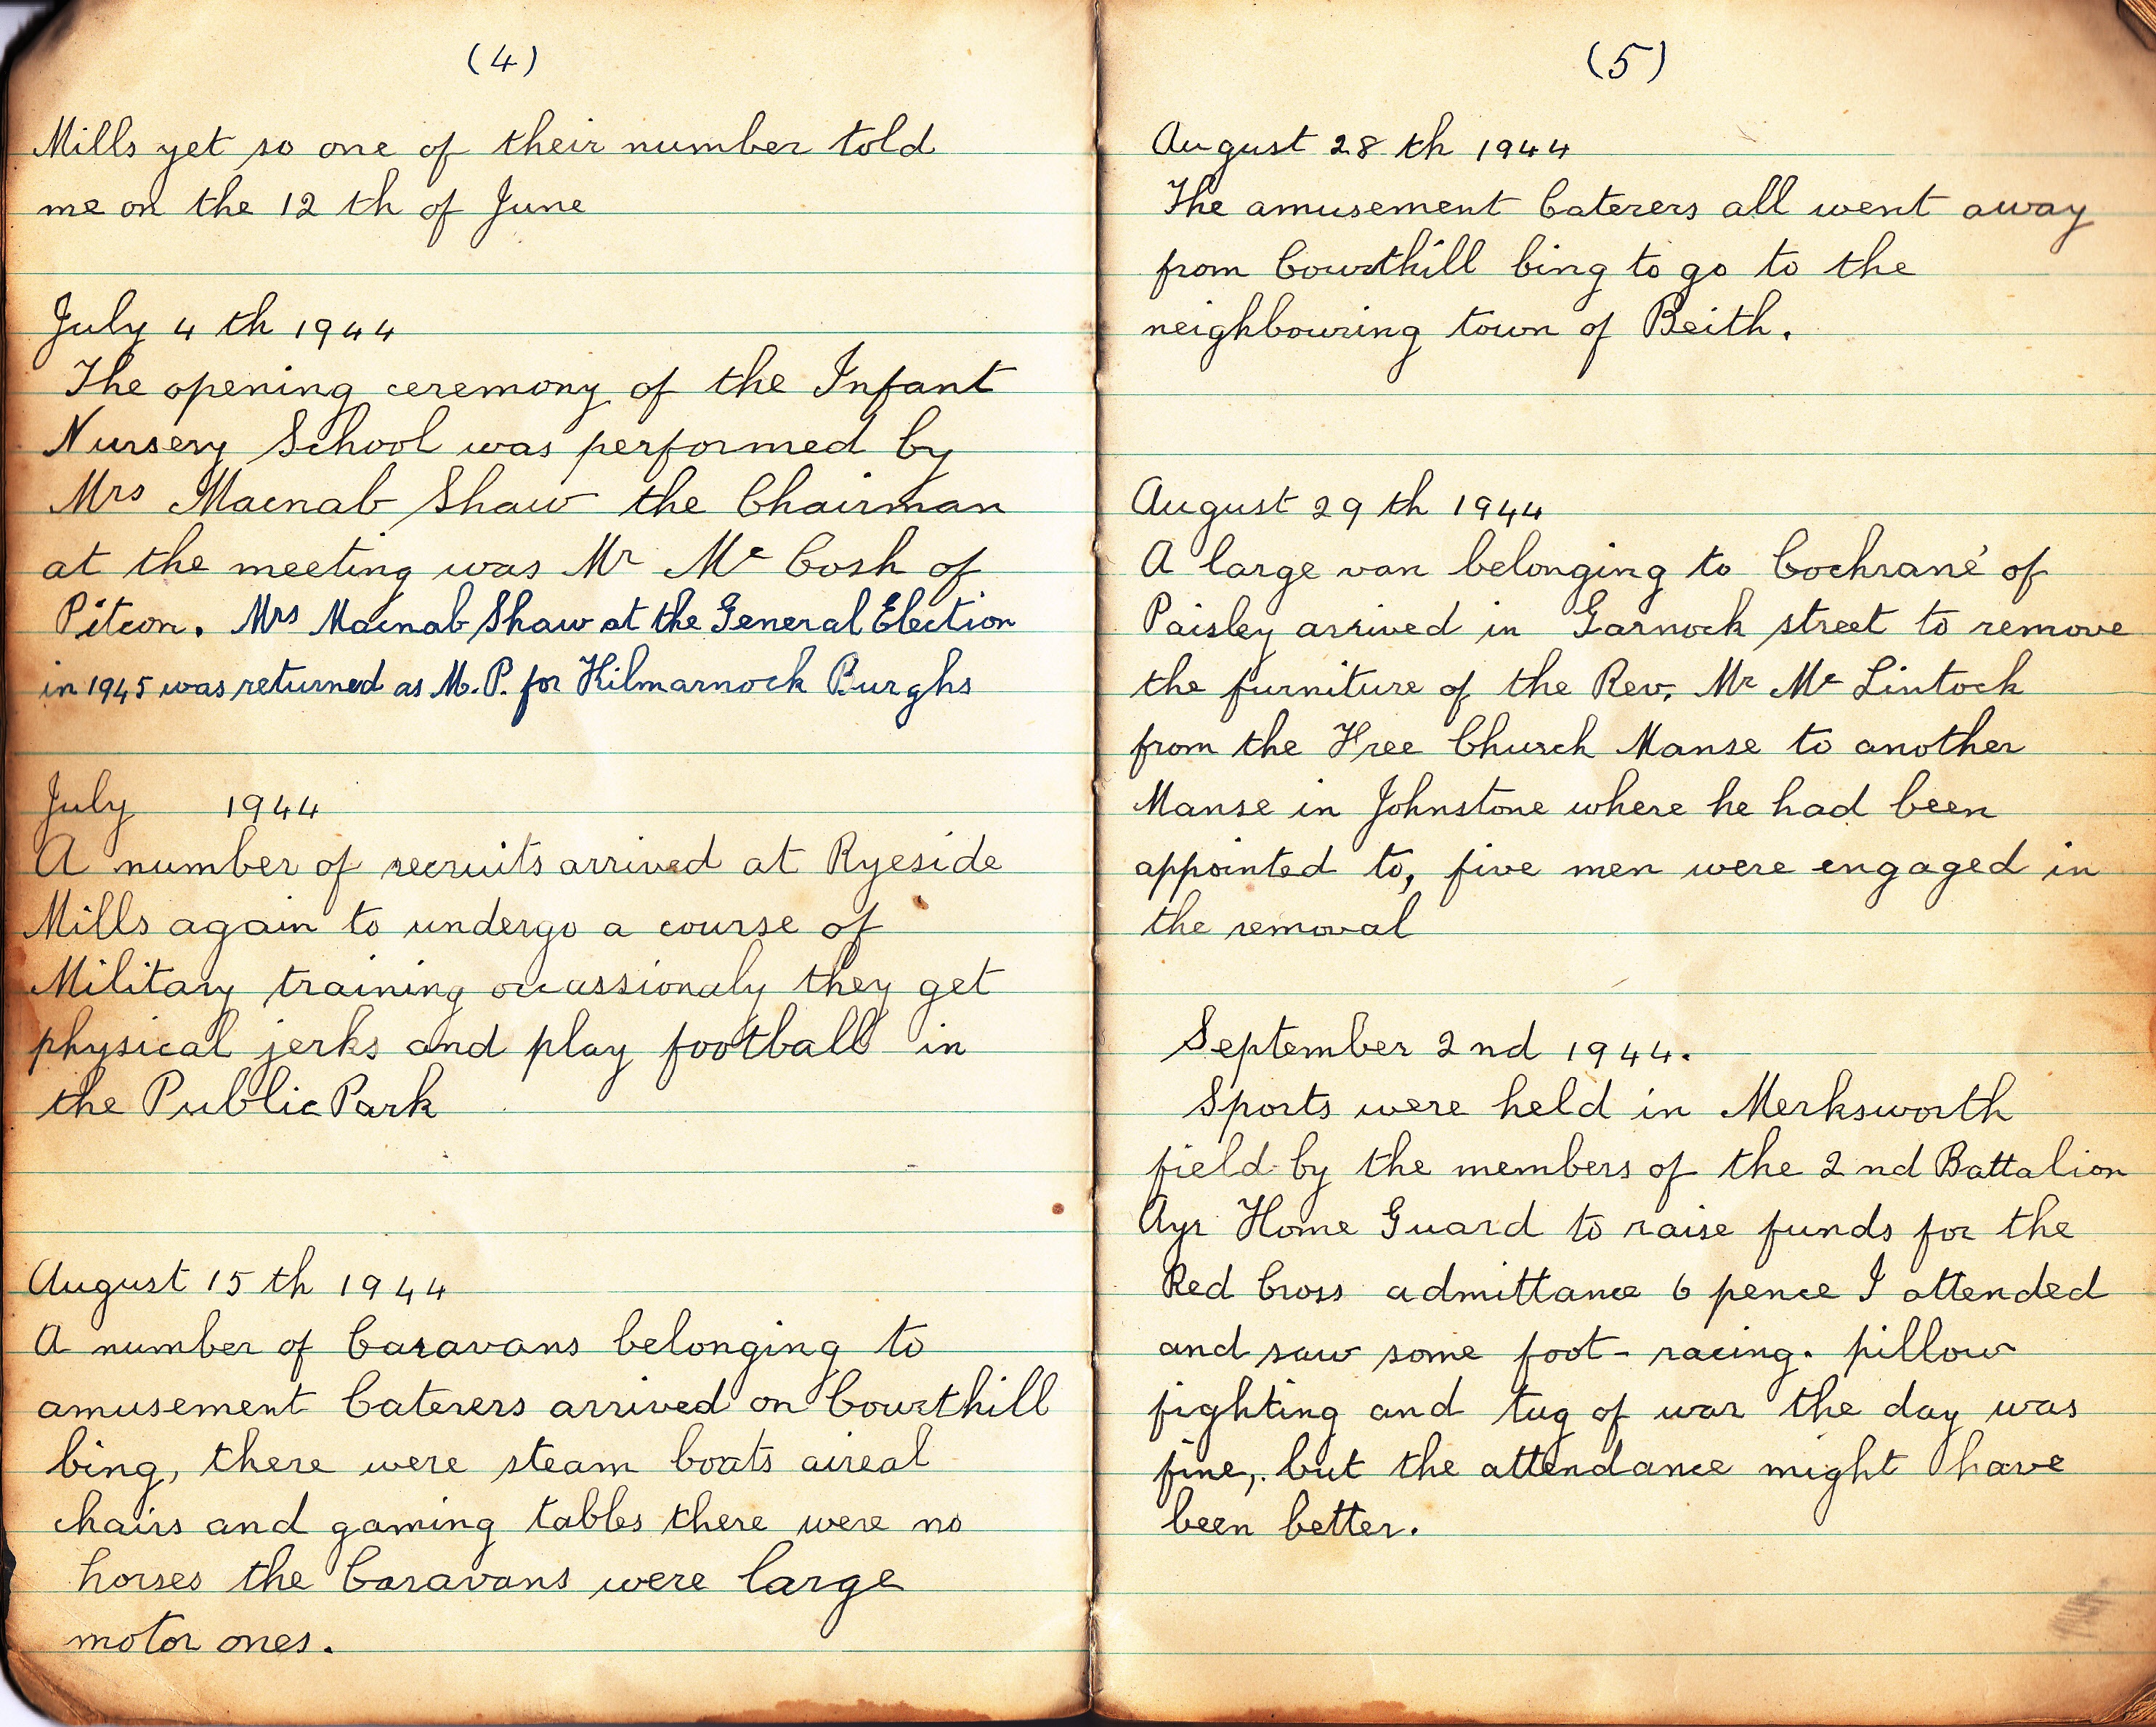 (4)
Mills yet so one of their number told
me on the 12 th of June
July 4 th 1944
The opening ceremony of the Infant
Nursery School was performed by
Mrs Macnab Shaw the Chairman
at the meeting was Mr Mc Cosh of
Pitcon. Mrs Macnab Shaw at the General Election
in 1945 was returned as M.P. for Kilmarnock Burghs
July 1944
A number of recruits arrived at Ryeside
Mills again to undergo a course of
Military training occassionaly they get
physical jerks and play football in
the Public Park
August 15 th 1944
A number of Caravans belonging to
amusement Caterers arrived on Courthill
bing, there were steam boats aireal
chairs and gaming tables there were no
horses the Caravans were large
motor ones.
(5)
August 28 th 1944
The amusement Caterers all went away
from Courthill bing to go to the
neighbouring town of Beith.
August 29 th 1944
A large van belonging to Cochrane' of
Paisley arrived in Garnock street to remove
the furniture of the Rev. Mr Mc Lintock
from the Free Church Manse to another
Manse in Johnstone where he had been
appointed to, five men were engaged in
the removal
September 2 nd 1944.
Sports were held in Merksworth
field by the members of the 2 nd Battalion
Ayr Home Guard to raise funds for the
Red Cross admittance 6 pence I attended
and saw some foot - racing. pillow
fighting and tug of war the day was
fine, but the attendance might have
been better.